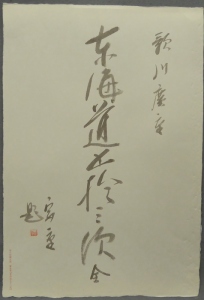 歌川廣重
東海道五拾三次 全
宏重題